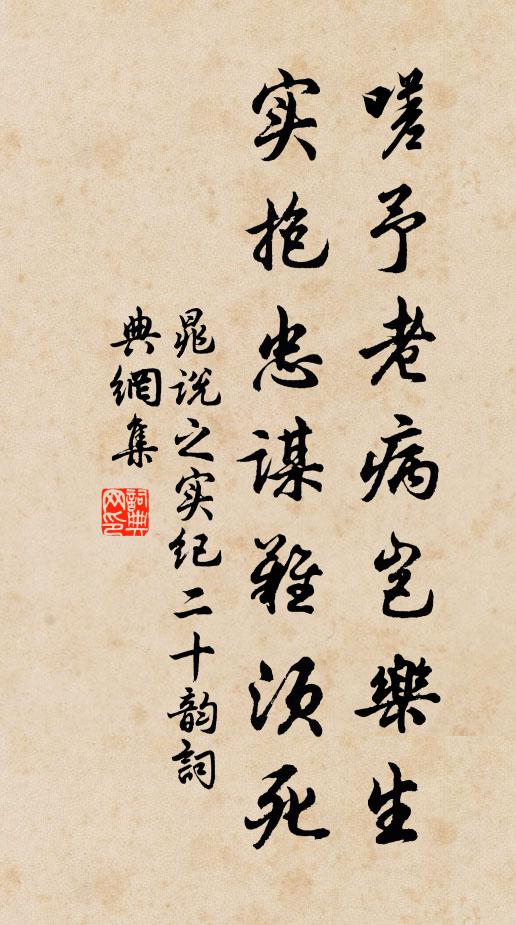 嗟予老病岂樂生
实抱忠谋難须死
晁说之实纪二十韵詞
典網集
詞典
网印